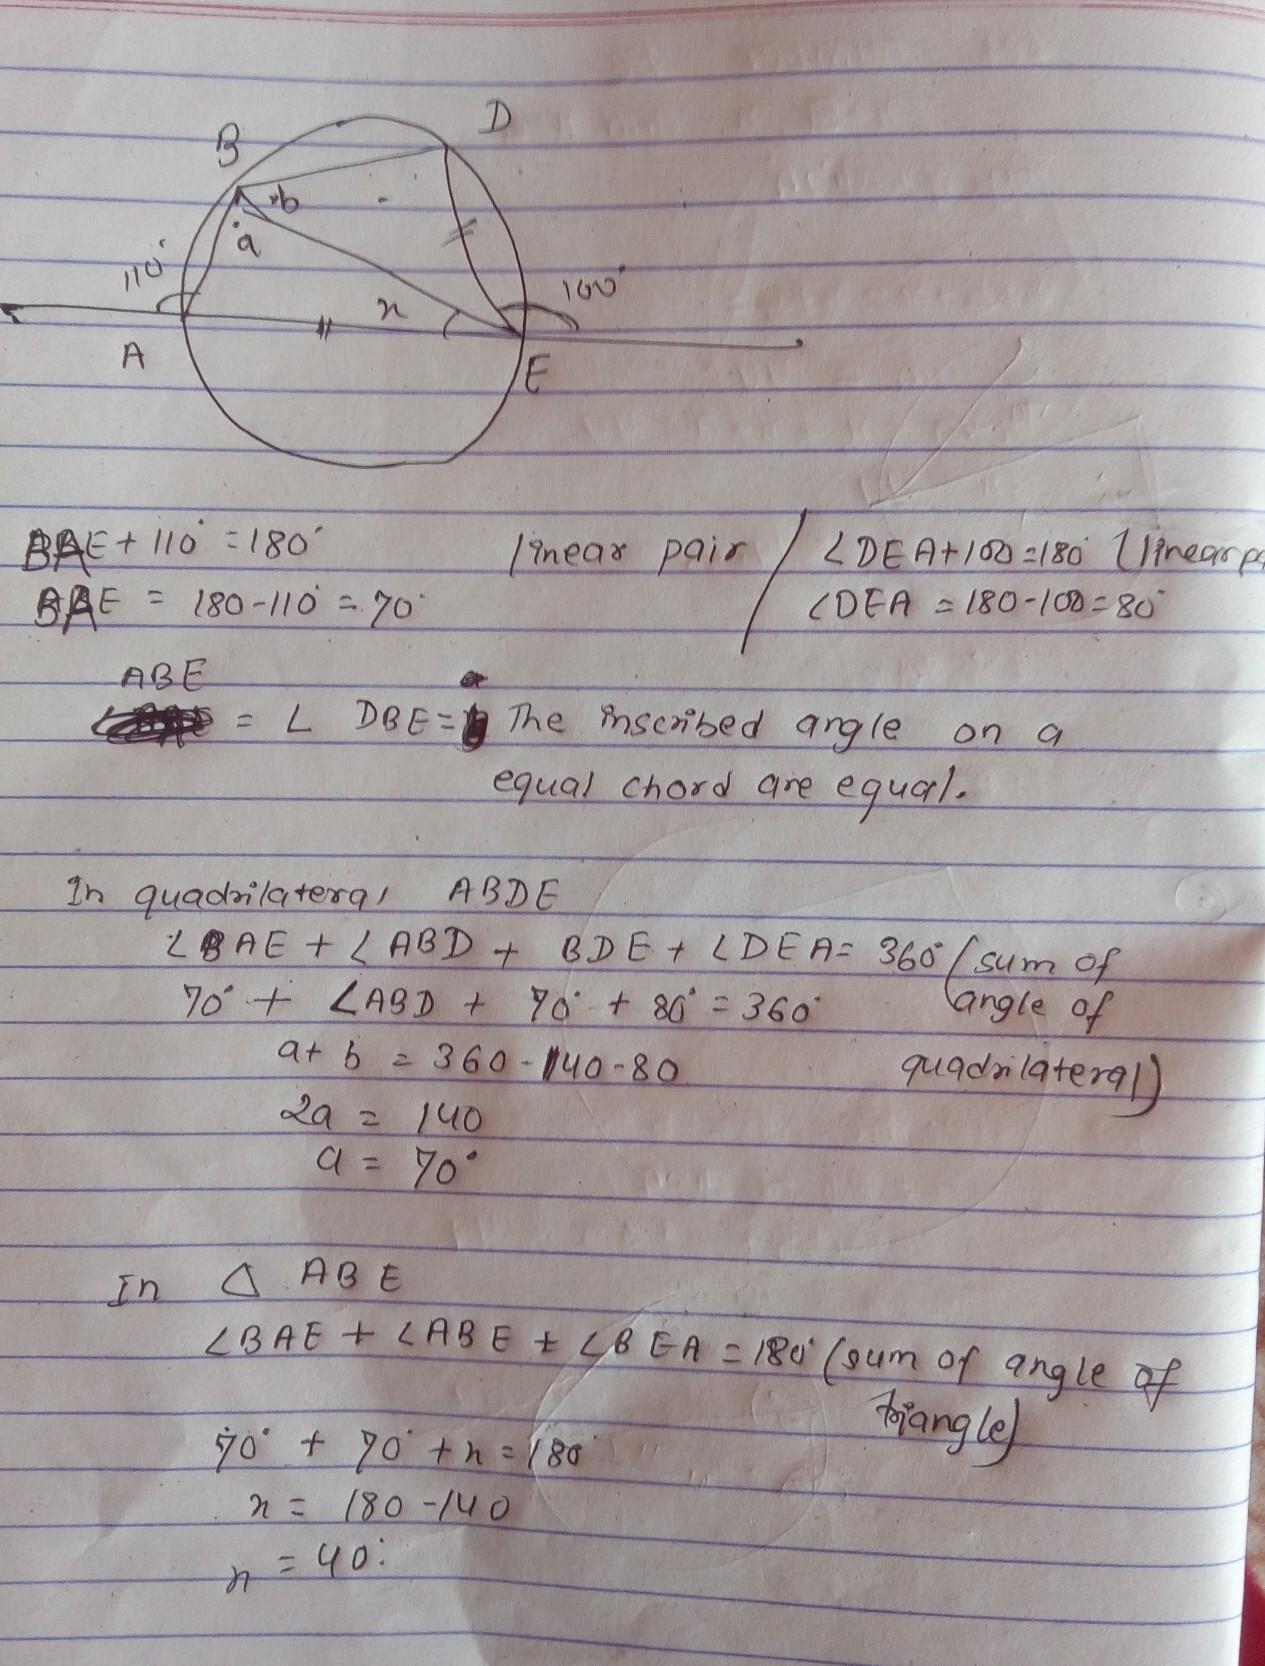 B
D
b
a
110°
n
100°
A
E
BAE + 110° = 180° linear pair / ∠DEA+100=180° (linear
BAE = 180-110° = 70° ∠DEA = 180-100=80°
ABE
= ∠ DBE= The inscribed angle on a
equal chord are equal.
In quadrilateral ABDE
∠BAE + ∠ABD + BDE + ∠DEA= 360° (sum of
70° + ∠ABD + 70° + 80° = 360° angle of
a+ b = 360-140-80 quadrilateral)
2a = 140
a = 70°
In △ ABE
∠BAE + ∠ABE + ∠BEA = 180° (sum of angle of
triangle)
70° + 70° + n = 180°
n = 180-140
n = 40°